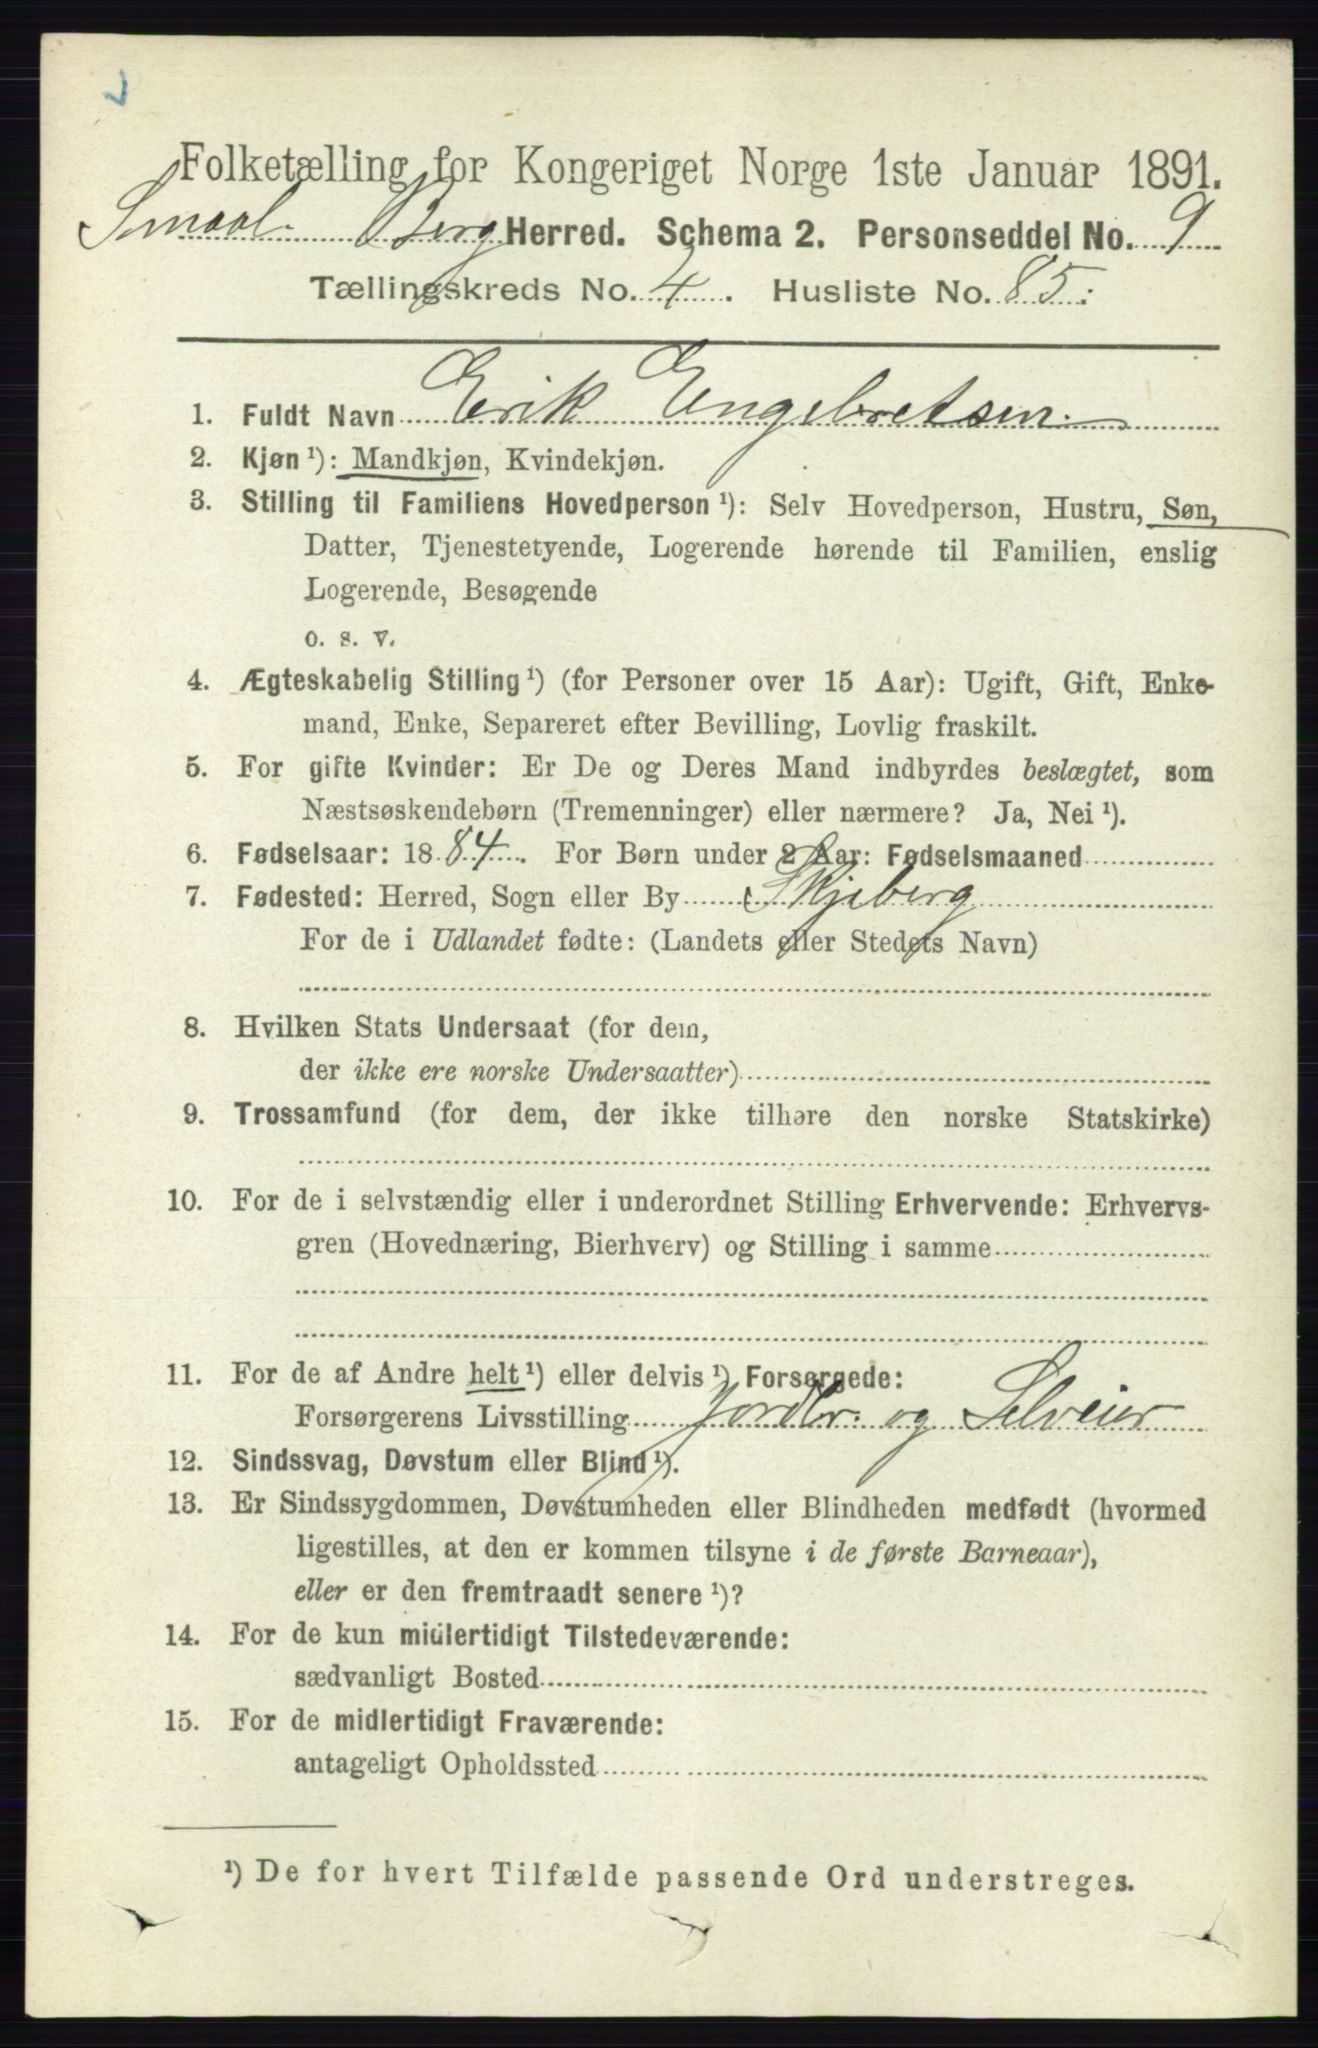 Folketælling for Kongeriget Norge 1ste Januar 1891.
Smaal. Berg Herred. Schema 2. Personseddel No. 9
Tællingskreds No. 4. Husliste No. 85.
1. Fuldt Navn Erik Engebretsen
2. Kjøn ¹): Mandkjøn, Kvindekjøn.
3. Stilling til Familiens Hovedperson ¹): Selv Hovedperson, Hustru, Søn,
Datter, Tjenestetyende, Logerende hørende til Familien, enslig
Logerende, Besøgende
o. s. v.
4. Ægteskabelig Stilling ¹) (for Personer over 15 Aar): Ugift, Gift, Enke-
mand, Enke, Separeret efter Bevilling, Lovlig fraskilt.
5. For gifte Kvinder: Er De og Deres Mand indbyrdes beslægtet, som
Næstsøskendebørn (Tremenninger) eller nærmere? Ja, Nei ¹).
6. Fødselsaar: 1884. For Børn under 2 Aar: Fødselsmaaned
7. Fødested: Herred, Sogn eller By Skjeberg
For de i Udlandet fødte: (Landets eller Stedets Navn)
8. Hvilken Stats Undersaat (for dem,
der ikke ere norske Undersaatter)
9. Trossamfund (for dem, der ikke tilhøre den norske Statskirke)
10. For de i selvstændig eller i underordnet Stilling Erhvervende: Erhvervs-
gren (Hovednæring, Bierhverv) og Stilling i samme
11. For de af Andre helt ¹) eller delvis ¹) Forsørgede:
Forsørgerens Livsstilling Jordbr. og Selveier
12. Sindssvag, Døvstum eller Blind ¹).
13. Er Sindssygdommen, Døvstumheden eller Blindheden medfødt (hvormed
ligestilles, at den er kommen tilsyne i de første Barneaar),
eller er den fremtraadt senere ¹)?
14. For de kun midlertidigt Tilstedeværende:
sædvanligt Bosted
15. For de midlertidigt Fraværende:
antageligt Opholdssted
¹) De for hvert Tilfælde passende Ord understreges.